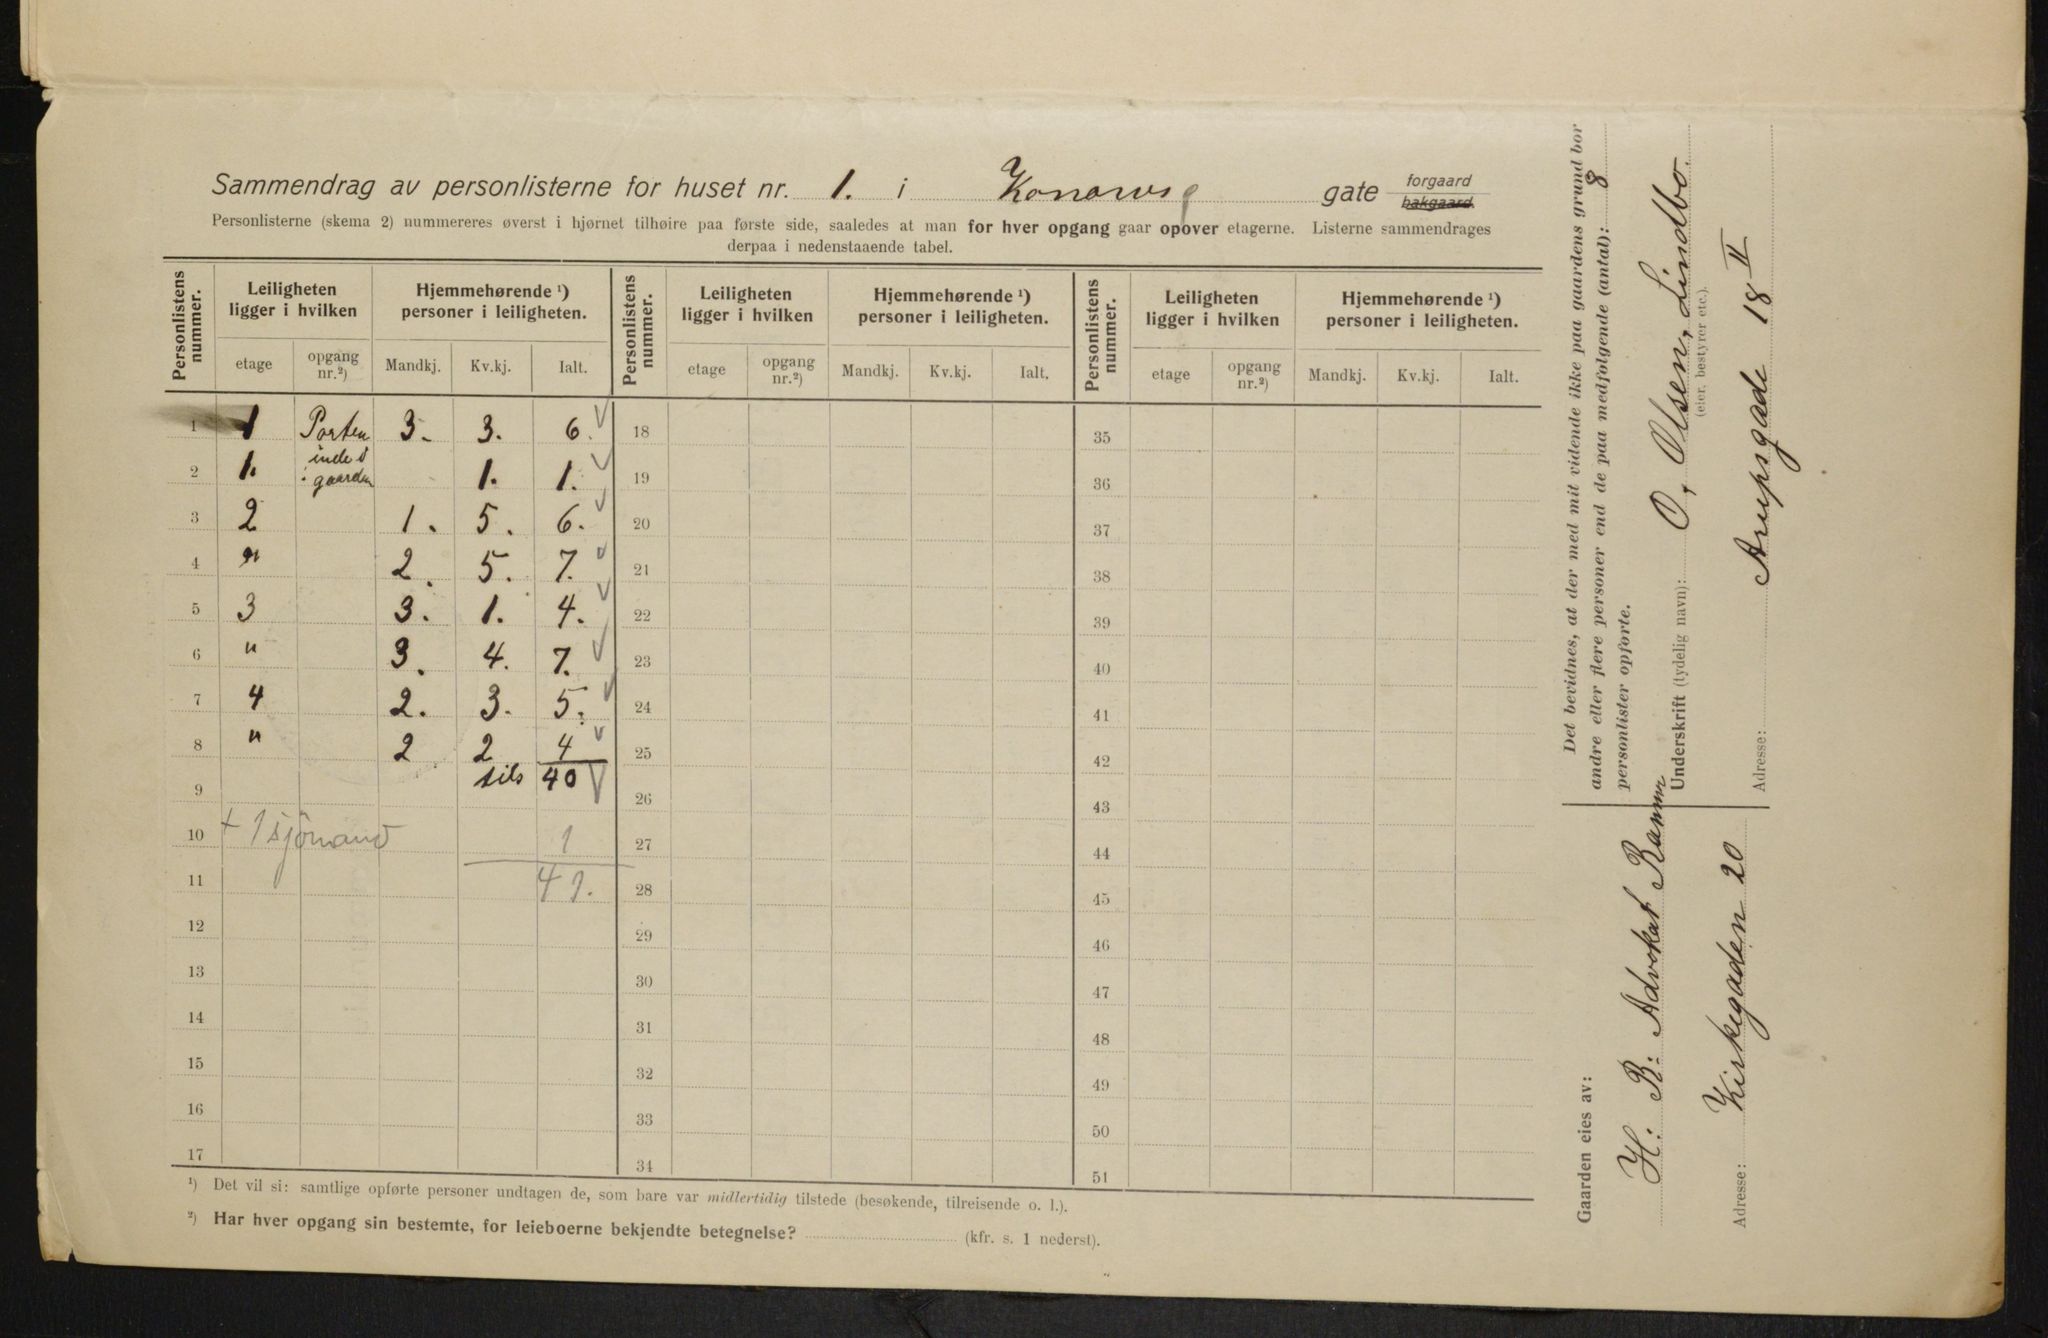 Sammendrag av personlisterne for huset nr. 1. i Konowsg gate forgaard bakgaard.
Personlisterne (skema 2) nummereres øverst i hjørnet tilhøire paa første side, saaledes at man for hver opgang gaar opover etagerne. Listerne sammendrages
derpaa i nedenstaaende tabel.
Personlistens nummer. Leiligheten ligger i hvilken Hjemmehørende ¹) personer i leiligheten. Personlistens nummer. Leiligheten ligger i hvilken Hjemmehørende ¹) personer i leiligheten. Personlistens nummer. Leiligheten ligger i hvilken Hjemmehørende ¹) personer i leiligheten.
etage opgang nr.²) Mandkj. Kv.kj. Ialt. etage opgang nr.²) Mandkj. Kv.kj. Ialt. etage opgang nr.²) Mandkj. Kv.kj. Ialt.
1 1 Porten 3. 3. 6. 18 35
2 1. inde i gaarden 1. 1. 19 36
3 2 1. 5. 6. 20 37
4 " 2. 5. 7. 21 38
5 3 3. 1. 4. 22 39
6 " 3. 4. 7. 23 40
7 4 2. 3. 5. 24 41
8 " 2 2 4 25 42
9 tils 40 26 43
10 + 1 sjömand 1 27 44
11 41. 28 45
12 29 46
13 30 47
14 31 48
15 32 49
16 33 50
17 34 51
¹) Det vil si: samtlige opførte personer undtagen de, som bare var midlertidig tilstede (besøkende, tilreisende o. l.).
²) Har hver opgang sin bestemte, for leieboerne bekjendte betegnelse? (kfr. s. 1 nederst).
Det bevidnes, at der med mit vidende ikke paa gaardens grund bor
andre eller flere personer end de paa medfølgende (antal): 8
personlister opførte.
Underskrift (tydelig navn): O, Olsen, Lindbo.
(eier, bestyrer etc.).
Adresse: Arupsgade 18 II
Gaarden eies av:
H: R: Advokat
Adresse: Kirkegaden 20